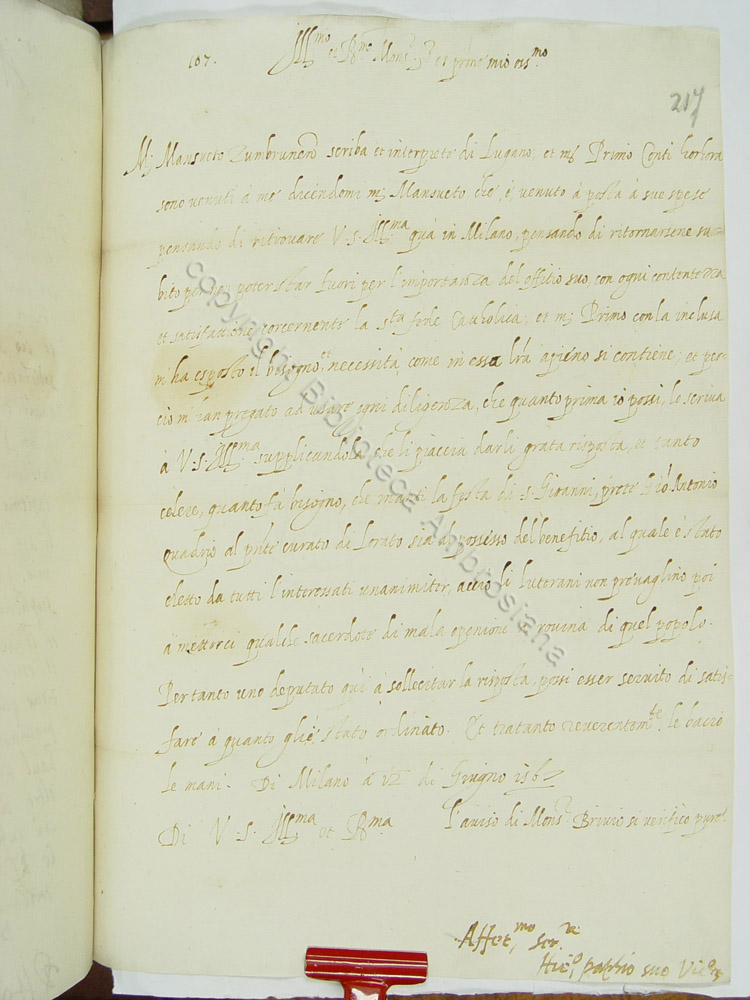 107.
Ill.mo et R.mo Mons.r S.r et prone mio oss.mo
217
M; Mansueto Zumbruneno scriba et interprete di Lugano; et m; Primo Conti
sono venuti à me dicendomi m; Mansueto che è venuto à posta à sue spese
pensando di ritrovare V. S. Ill.ma quà in Milano, pensando di ritornarsene su-
bito per non poter star fuori per l'importanza del offitio suo, con ogni contentezza
et satisfatione concernente la s.ta fede Catholica; et m; Primo con la inclusa
m'ha esposto il bisogno, et necessità come in essa lra apieno si contiene; et per-
ciò m'han pregato ad usare ogni diligenza, che quanto prima io possi, le scriva
à V. S. Ill.ma supplicandola che li piaccia darli grata risposta, et tanto
celere, quanto fà bisogno, che inanti la festa di s. Giovanni, prete Gio Antonio
Quadrio al pnte curato di Lorato sia al possesso del benefitio, al quale è stato
eletto da tutti l'interessati unanimiter, acciò li luterani non prevaglino poi
à metterci qualche sacerdote di mala openione rovina di quel popolo.
Per tanto uno deputato quì à sollecitar la risposta, possi esser servito di satis-
fare à quanto gliè stato ordinato. Et tratanto reverentem.te le bacio
le mani. Di Milano à 12 di Giugno 1567
Di V. S. Ill.ma et R.ma l'aviso di Mons.r Brivio si verificò
Affet.mo ser.re
suo Vic.o
copyright Biblioteca Ambrosiana